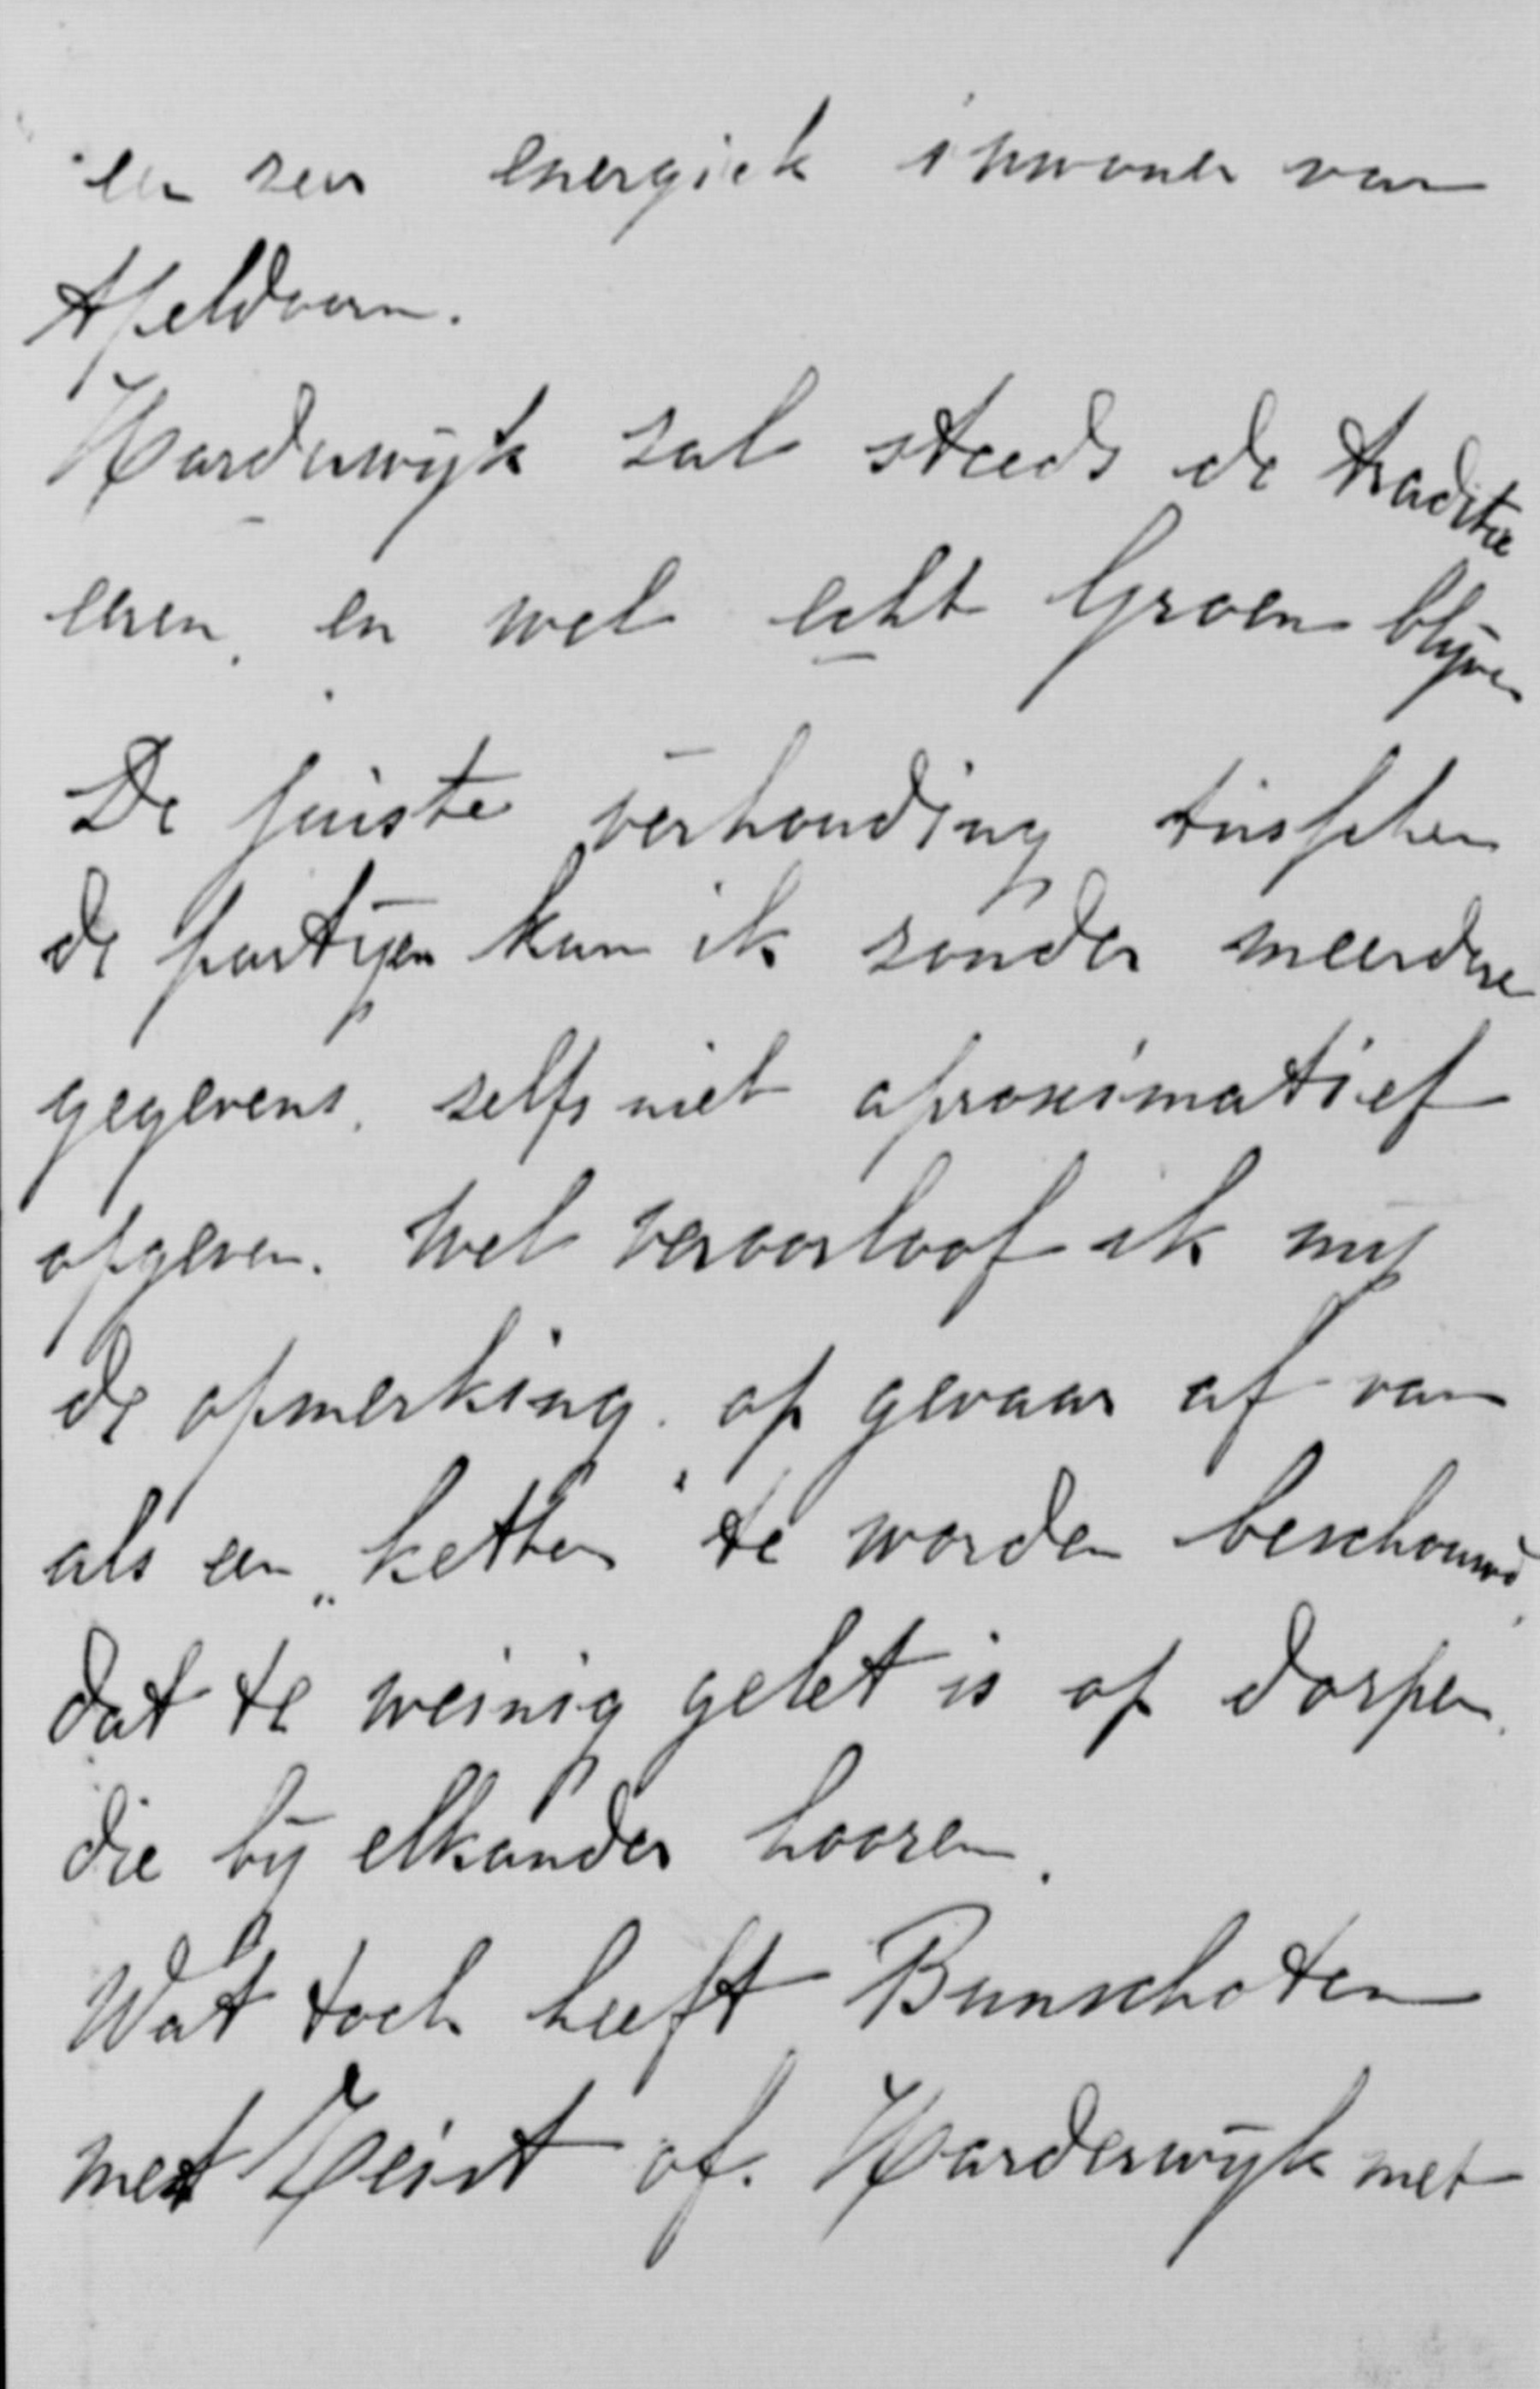 een zeer energiek inwoner van
Apeldoorn.
Harderwijk zal steeds de traditie
eeren, en wel echt Groen blijven
De juiste verhouding tusschen
de partijen kan ik zonder meerdere
gegevens, zelfs niet aproximatief
opgeven. Wel veroorloof ik mij
de opmerking, op gevaar af van
als een „ketter" te worden beschouwd,
dat te weinig gelet is op dorpen,
die bij elkander hooren.
Wat toch heeft Bunschoten
met Zeist of Harderwijk met